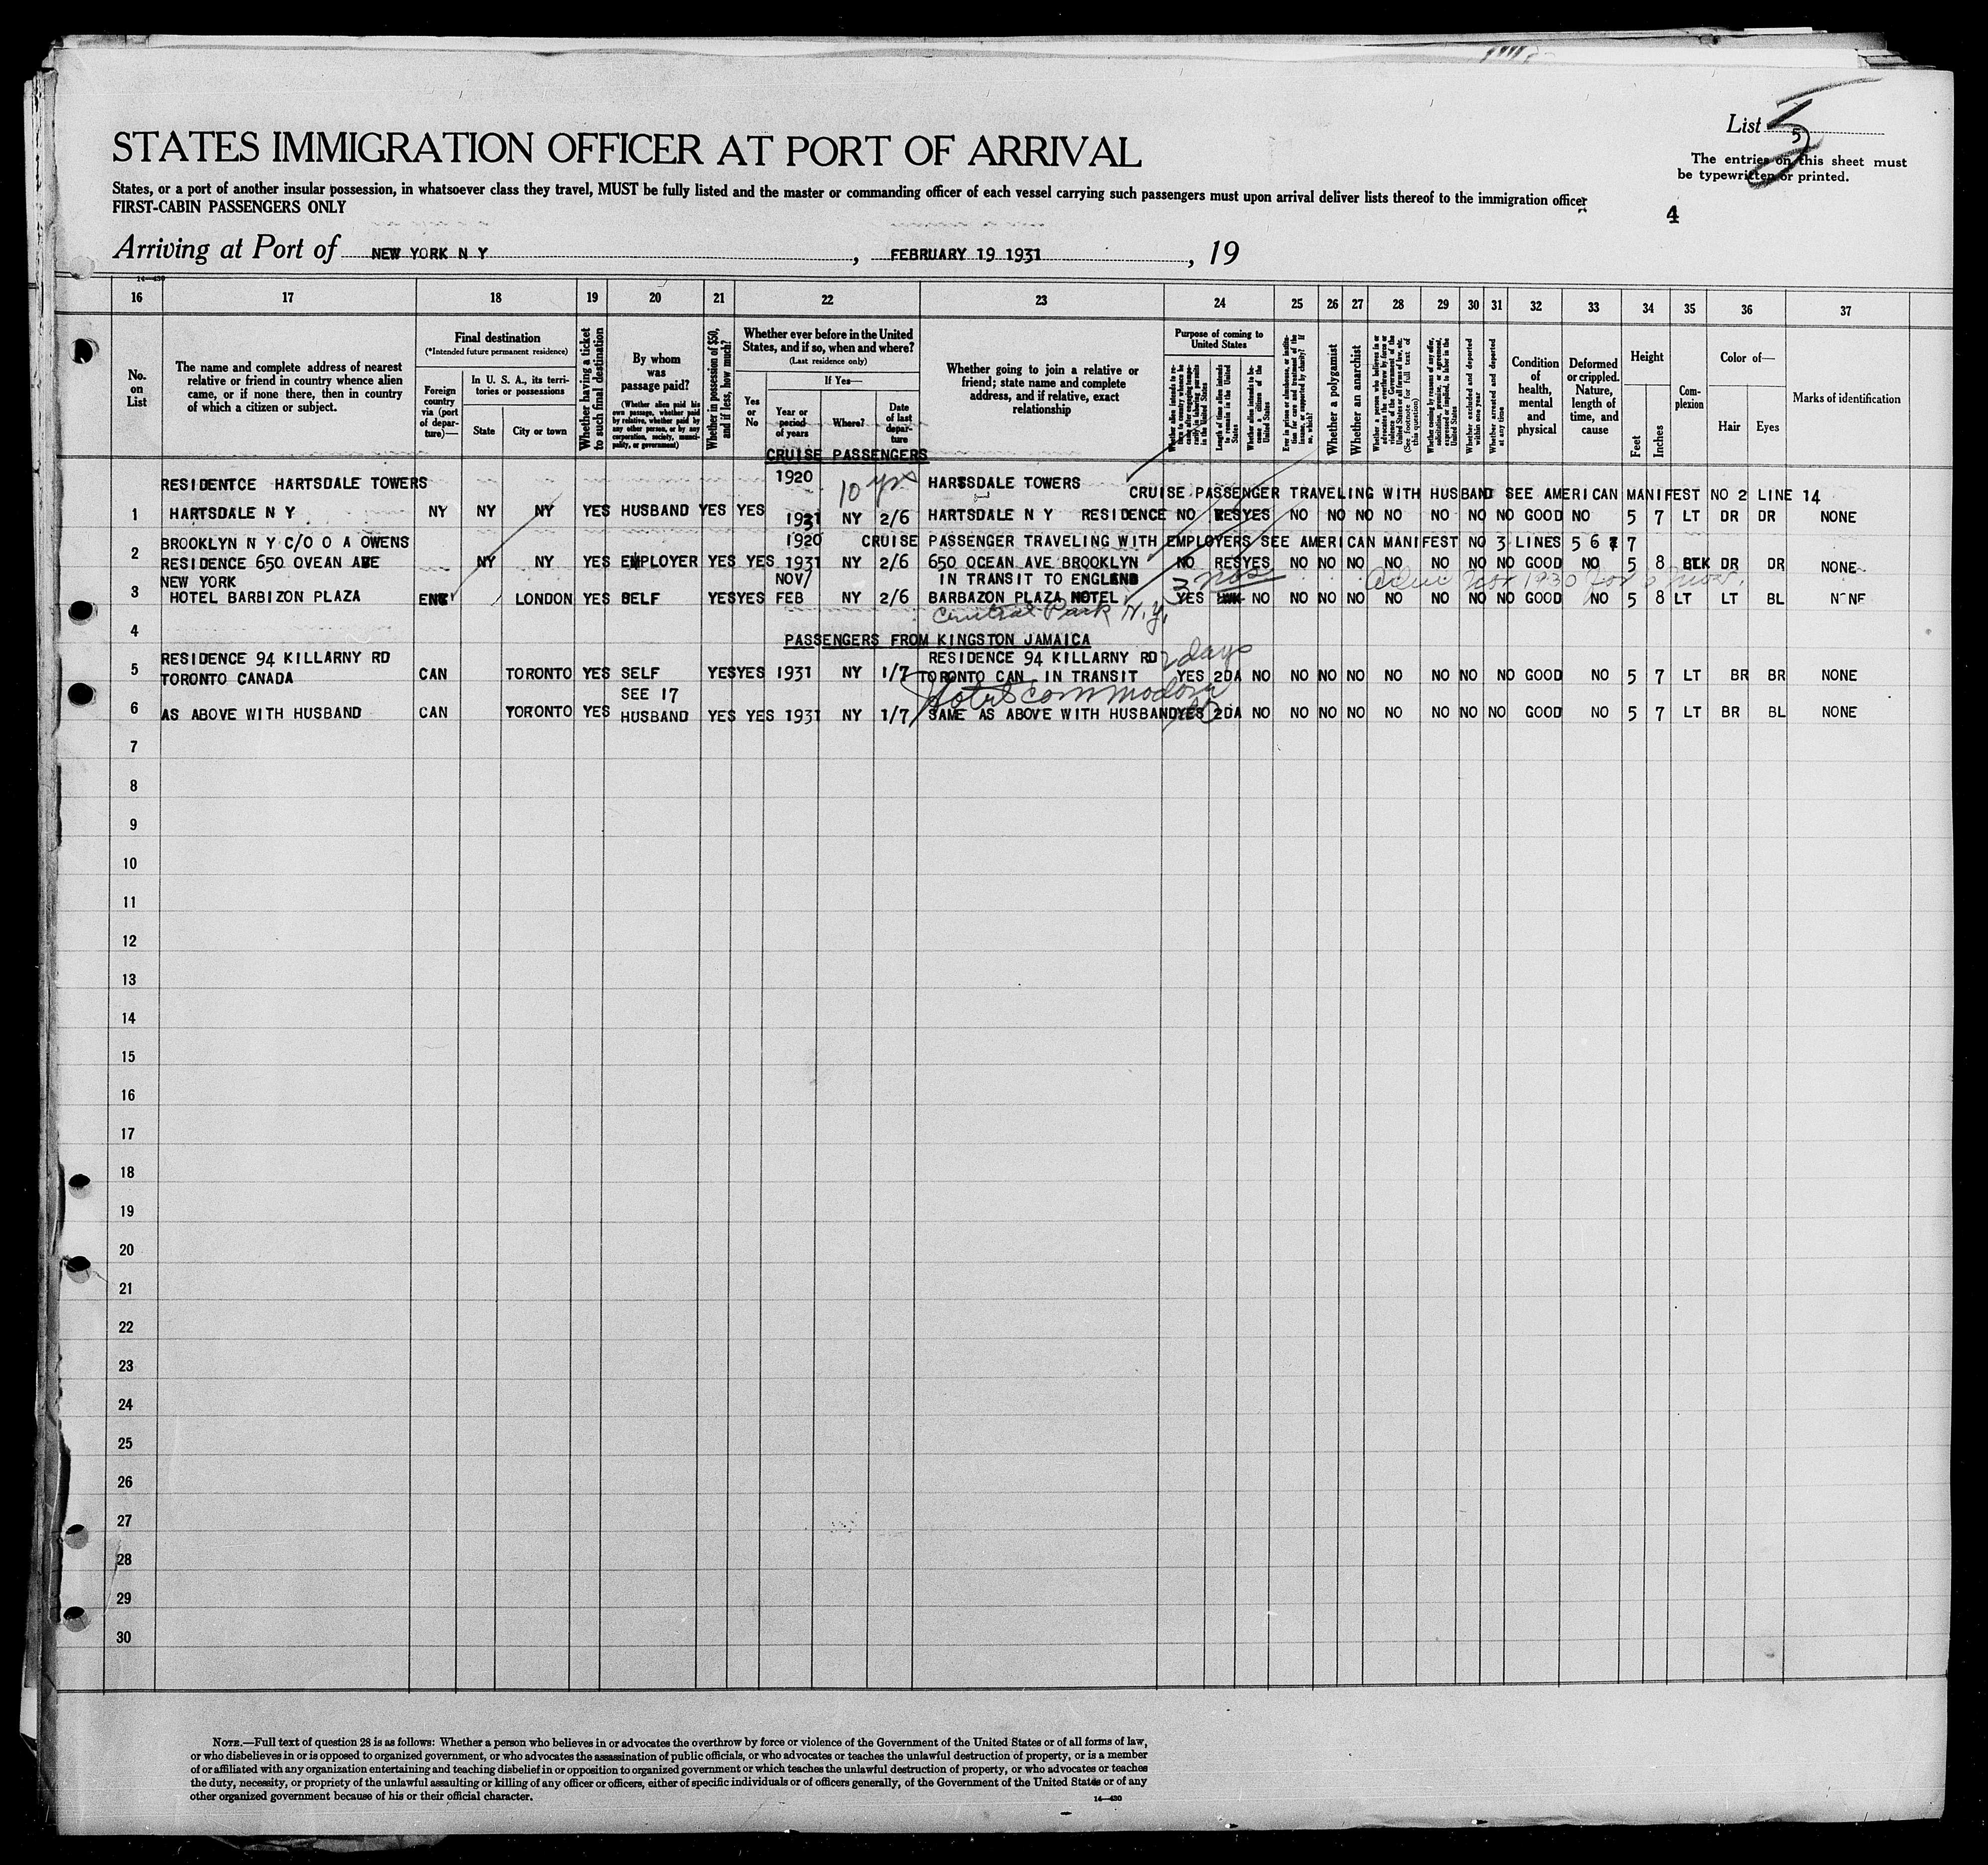 List 5
5
The entries on this sheet must
be typewritten or printed.
STATES IMMIGRATION OFFICER AT PORT OF ARRIVAL
States, or a port of another insular possession, in whatsoever class they travel, MUST be fully listed and the master or commanding officer of each vessel carrying such passengers must upon arrival deliver lists thereof to the immigration officer
FIRST-CABIN PASSENGERS ONLY
4
Arriving at Port of NEW YORK N Y , FEBRUARY 19 1931 , 19
14—430
16 17 18 19 20 21 22 23 24 25 26 27 28 29 30 31 32 33 34 35 36 37
No.
on
List
The name and complete address of nearest
relative or friend in country whence alien
came, or if none there, then in country
of which a citizen or subject.
Final destination
(*Intended future permanent residence)
Foreign
country
via (port
of depar-
ture)—
In U. S. A., its terri-
tories or possessions
State
City or town
Whether having a ticket
to such final destination
By whom
was
passage paid?
(Whether alien paid his
own passage, whether paid
by relative, whether paid by
any other person, or by any
corporation, society, munici-
pality, or government)
Whether in possession of $50,
and if less, how much?
Whether ever before in the United
States, and if so, when and where?
(Last residence only)
Yes
or
No
If Yes—
Year or
period
of years
Where?
Date
of last
depar-
ture
Whether going to join a relative or
friend; state name and complete
address, and if relative, exact
relationship
Purpose of coming to
United States
Whether alien intends to re-
turn to country whence he
came after engaging tempo-
rarily in laboring pursuits
in the United States
Length of time alien intends
to remain in the United
States
Whether alien intends to be-
come a citizen of the
United States
Ever in prison or almshouse, or institu-
tion for care and treatment of the
insane, or supported by charity? If
so, which?
Whether a polygamist
Whether an anarchist
Whether a person who believes in or
advocates the overthrow by force or
violence of the Government of the
United States or all forms of law, etc.
(See footnote for full text of
this question)
Whether coming by reason of any offer,
solicitation, promise, or agreement,
expressed or implied, to labor in the
United States
Whether excluded and deported
within one year
Whether arrested and deported
at any time
Condition
of
health,
mental
and
physical
Deformed
or crippled.
Nature,
length of
time, and
cause
Height
Feet
Inches
Com-
plexion
Color of—
Hair
Eyes
Marks of identification
CRUISE PASSENGERS
RESIDENTCE HARTSDALE TOWERS 1920 10 yrs HARTSDALE TOWERS
CRUISE PASSENGER TRAVELING WITH HUSBAND SEE AMERICAN MANIFEST NO 2 LINE 14
1 HARTSDALE N Y NY NY NY YES HUSBAND YES YES 1931 NY 2/6 HARTSDALE N Y RESIDENCE NO RES YES NO NO NO NO NO NO NO GOOD NO 5 7 LT DR DR NONE
BROOKLYN N Y C/O O A OWENS 1920 CRUISE PASSENGER TRAVELING WITH EMPLOYERS SEE AMERICAN MANIFEST NO 3 LINES 5 6 7
2 RESIDENCE 650 OVEAN AVE NY NY YES EMPLOYER YES YES 1931 NY 2/6 650 OCEAN AVE BROOKLYN NO RES YES NO NO NO NO NO NO NO GOOD NO 5 8 BLK DR DR NONE
NEW YORK NOV/ IN TRANSIT TO ENGLAND 3 mos Nov 1930 for 6 mos.
3 HOTEL BARBIZON PLAZA ENG LONDON YES SELF YES YES FEB NY 2/6 BARBAZON PLAZA HOTEL YES NO NO NO NO NO NO NO NO GOOD NO 5 8 LT LT BL NONE
Central Park N.Y.
4
PASSENGERS FROM KINGSTON JAMAICA
RESIDENCE 94 KILLARNY RD RESIDENCE 94 KILLARNY RD 2 days
5 TORONTO CANADA CAN TORONTO YES SELF YES YES 1931 NY 1/7 TORONTO CAN IN TRANSIT YES 2DA NO NO NO NO NO NO NO NO GOOD NO 5 7 LT BR BR NONE
SEE 17 Hotel Commodore
6 AS ABOVE WITH HUSBAND CAN TORONTO YES HUSBAND YES YES 1931 NY 1/7 SAME AS ABOVE WITH HUSBAND YES 2DA NO NO NO NO NO NO NO NO GOOD NO 5 7 LT BR BL NONE
7
8
9
10
11
12
13
14
15
16
17
18
19
20
21
22
23
24
25
26
27
28
29
30
NOTE.—Full text of question 28 is as follows: Whether a person who believes in or advocates the overthrow by force or violence of the Government of the United States or of all forms of law,
or who disbelieves in or is opposed to organized government, or who advocates the assassination of public officials, or who advocates or teaches the unlawful destruction of property, or is a member
of or affiliated with any organization entertaining and teaching disbelief in or opposition to organized government or which teaches the unlawful destruction of property, or who advocates or teaches
the duty, necessity, or propriety of the unlawful assaulting or killing of any officer or officers, either of specific individuals or of officers generally, of the Government of the United States or of any
other organized government because of his or their official character.
14—430